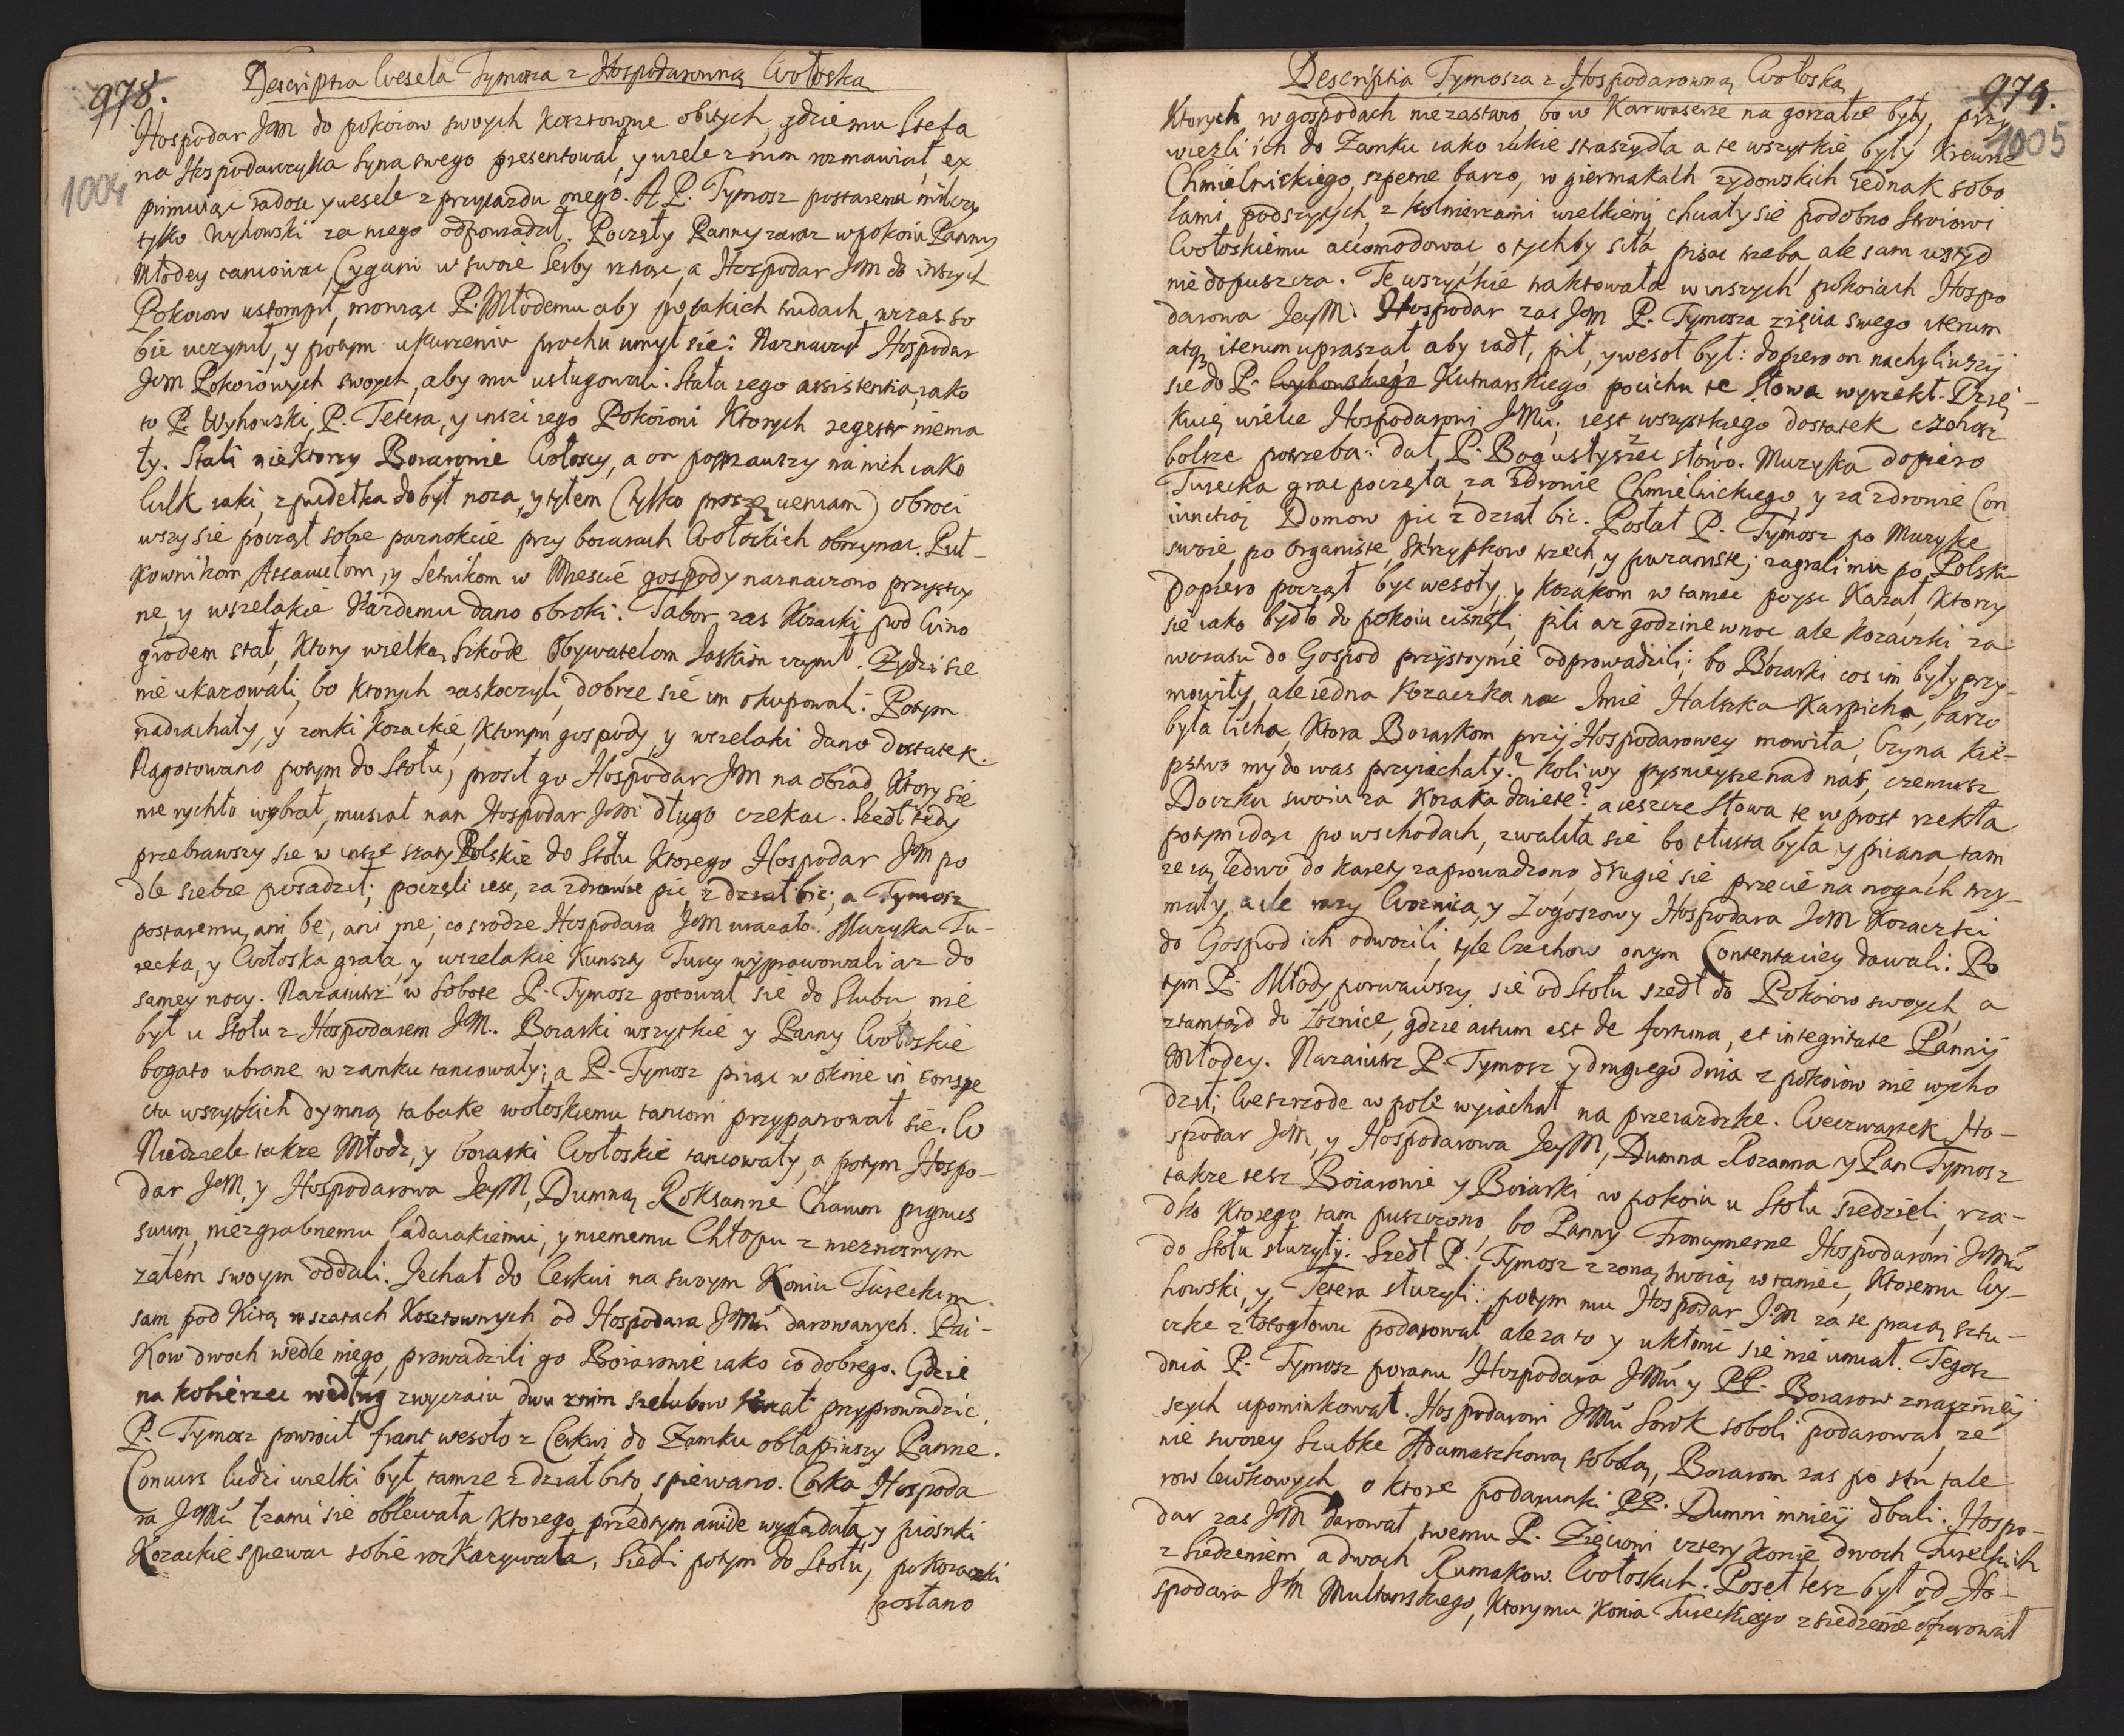 978.
Descriptia Wesela Tymosza z Hospodarowną Wołoską
1004
Hospodar JeM do pokoiow swoych kosztownie obitych, gdzie mu Stefa
na Hospodarczyka syna swego presentował, y wiele z nim rozmawiał, ex
primuiąc radość y wesele z przyiazdu onego. A P. Tymosz postaremu milczy
tylko Wyhowski za niego odpowiadał. Poczęły Panny zaraz w pokoiu Panny
Młodey tancować, Cygani w swoie Serby rznąc, a Hospodar JeM do inszych
Pokoiow ustompił, mowiąc P. Młodemu aby po takich trudach wczas so
bie uczynił, y potym ukurzeniu prochu umył sie: Naznaczył Hospodar
JeM Pokoiowych swoych, aby mu usługowali. Stała iego assistentia, iako
to P. Wyhowski, P. Tetera, y inszi iego Pokoiowi Ktorych regestr niema
ły. Stali niektorzy Boiarowie Wołoscy, a on pojrzawszy na nich iako
Wilk iaki, z pudełka dobył noza, y tyłem (tylko proszę veniam) obroci
wszy sie począł sobie paznokcie przy boiarach Wołoskich obrzynac. Puł-
kownikom, Assawułom, y Setnikom w Miescie gospody naznaczono przystoy
ne, y wszelakie kazdemu dano obroki. Tabor zas Kozacki pod Wino
grodem stał, Ktory wielką Szkode Obywatelom Jaskim czynił. Zydzi sie
nie ukazowali, bo ktorych zaskoczyli, dobrze sie im okupowali. Potym
nadiachały, y zonki kozackie, Ktorym gospody y wszelaki dano dostatek.
Nagotowano potym do Stołu, prosił go Hospodar JeM na obiad, Ktory sie
nie rychło wybrał, musiał nan Hospodar JeM długo czekac. Szedł tedy
przebrawszy sie w insze szaty Polskie do Stołu Ktorego Hospodar JeM po
dle siebie posadził; poczęli iesc, za zdrowie pic, z dział bic; a Tymosz
postaremu, ani be, ani me; co srodze Hospodara JeM urazało. Muzyka Tu-
recka, y Wołoska grała, y wszelakie Kunszty Turcy wyprawowali az do
samey nocy. Nazaiutrz w Sobote P. Tymosz gotował sie do Slubu, nie
był u Stołu z Hospodarem JeM. Boiarki wszytkie y Panny Wołoskie
bogato ubrane w zamku tancowały; a P. Tymosz piiąc w oknie in conspe
ctu wszytkich dymną tabake wołoskiemu tancowi przypatrował sie. W
Niedziele takze Młodz, y boiarki Wołoskie tancowały, a potym Hospo-
dar JeM, y Hospodarowa JeyM, Dumną Roksanne Charum pignus
suum, niezgrabnemu Ladaiakiemu, y niememu Chłopu z nieznosnym
załem swoym oddali. Jechał do Cerkwi na swoym Koniu Tureckim
sam pod Kitą w szatach Kosztownych od Hospodara JeMci darowanych. Pai-
kow dwoch wedle niego, prowadzili go Boiarowie iako co dobrego. Gdzie
na kobiercu według zwyczaiu dwu z nim szelubow miał przyprowadzic.
P. Tymosz powrocił frant wesoło z Cerkwi do Zamku obłapiwszy Panne.
Concurs ludzi wielki był, tamze z dział bito, spiewano. Corka Hospoda
ra JeMci łzami sie oblewała Ktorego przedtym anide wyglądała y piosnki
Kozackie spiewac sobie rozkazywała. Siedli potym do Stołu, po kozaczki
posłano
Descriptia Tymosza z Hospodarowną Wołoską
979.
1005
Ktorych w gospodach nie zastano, bo w Karwaserze na gorzałce były, przy
wiezli ich do Zamku iako iakie straszydła a te wszytkie były krewne
Chmielnickiego, szpetne barzo, w giermakach zydowskich iednak sobo
lami podszytych, z kolnierzami wielkiemi, chciały sie podobno Stroiowi
Wołoskiemu accomodowac, o tych by siła pisac trzeba, ale sam wstyd
nie dopuszcza. Te wszytkie traktowała w inszych pokoiach Hospo
darowa JeyM. Hospodar zas JeM P. Tymosza zięcia swego iterum
atq iterum upraszał, aby iadł, pił, y wesoł był: dopiero on nachyliwszy
sie do P. Wyhowskiego Kutnarskiego pocichu te słowa wyrzekł. Dzię-
kuię wielce Hospodarowi JMci; iest wszystkiego dostatek czehosz
bolsze potrzeba: dał P. Bog usłyszec słowo. Muzyka dopiero
Turecka grac poczęła, za zdrowie Chmielnickiego, y za zdrowie Con
iunctioy Domow pic z dział bic. Posłał P. Tymosz po Muzyke
swoie, po Organiste, Skrzypkow trzech, y puzaniste; zagrali mu po Polsku
dopiero począł byc wesoły, y kozakom w taniec poysc kazał, Ktorzy
sie iako bydło do pokoiu cisnęli, pili az godzine w noc ale Kozaczki za
wczasu do Gospod przystoynie odprowadzili; bo Boiarki cos im były przy-
mowiły, ale iedna kozaczka na Imie Halszka Karpicha, barzo
była licha, ktora Boiarkom przy Hospodarowey mowiła; Czy na kie-
pstwo my do was przyiachały? Koli wy pyszneysze nad nas, czemusz
Doczku swoiu za kozaka daiete? a ieszcze słowa te wprost rzekła
potym idąc po wschodach, zwaliła sie bo tłusta była y piiana, tam
ze ią ledwo do karety zaprowadzono, drugie sie przecie na nogach trzy-
mały, a ile razy Woznica, y Zogoszowy Hospodara JeM kozaczki
do Gospod ich odwozili, tyle Czechow onym Contentaciey dawali. Po
tym P. Młody porwawszy sie od Stołu szedł do Pokoiow swoych, a
ztamtąd do łoznice, gdzie actum est de fortuna, et integritate Panny
Młodey. Nazaiutrz P. Tymosz y drugiego dnia z pokoiow nie wycho
dził; We srzode w pole wyiachał na przeiazdzke. We czwartek Ho-
spodar JeM, y Hospodarowa JeyM, Dumna Rozanna y Pan Tymosz
takze tesz Boiarowie y Boiarki w pokoiu u Stołu siedzieli, rza-
dko Ktorego tam puszczono, bo Panny Francymerne Hospodarowi JeMci
do Stołu słuzyły. Szedł P. Tymosz z zoną swoią w taniec, Ktoremu Wy-
howski, y Tetera słuzyli: potym mu Hospodar JeM za te pracą sztu-
czke złotogłowu podarował, ale za to y ukłonic sie nie umiał. Tegosz
dnia P. Tymosz poranu Hospodara JMci y PP. Boiarow znacznieiy
szych upominkował. Hospodarowi JMci Sorok soboli podarował, ze
nie swoiey Szubke Adamaszkową sobolą, Boiarom zas po stu tale
row lewkowych, o ktore podarunki PP. Dumni mnieiy dbali. Hospo-
dar zas JeM darował swemu P. Zięciowi cztery Konie dwoch Tureckich
z Siedzeniem a dwoch Rumakow Wołoskich. Poseł tesz był od Ho-
spodara JM Multanskiego, Ktory mu Konia Tureckiego z siedzenie ofiarował